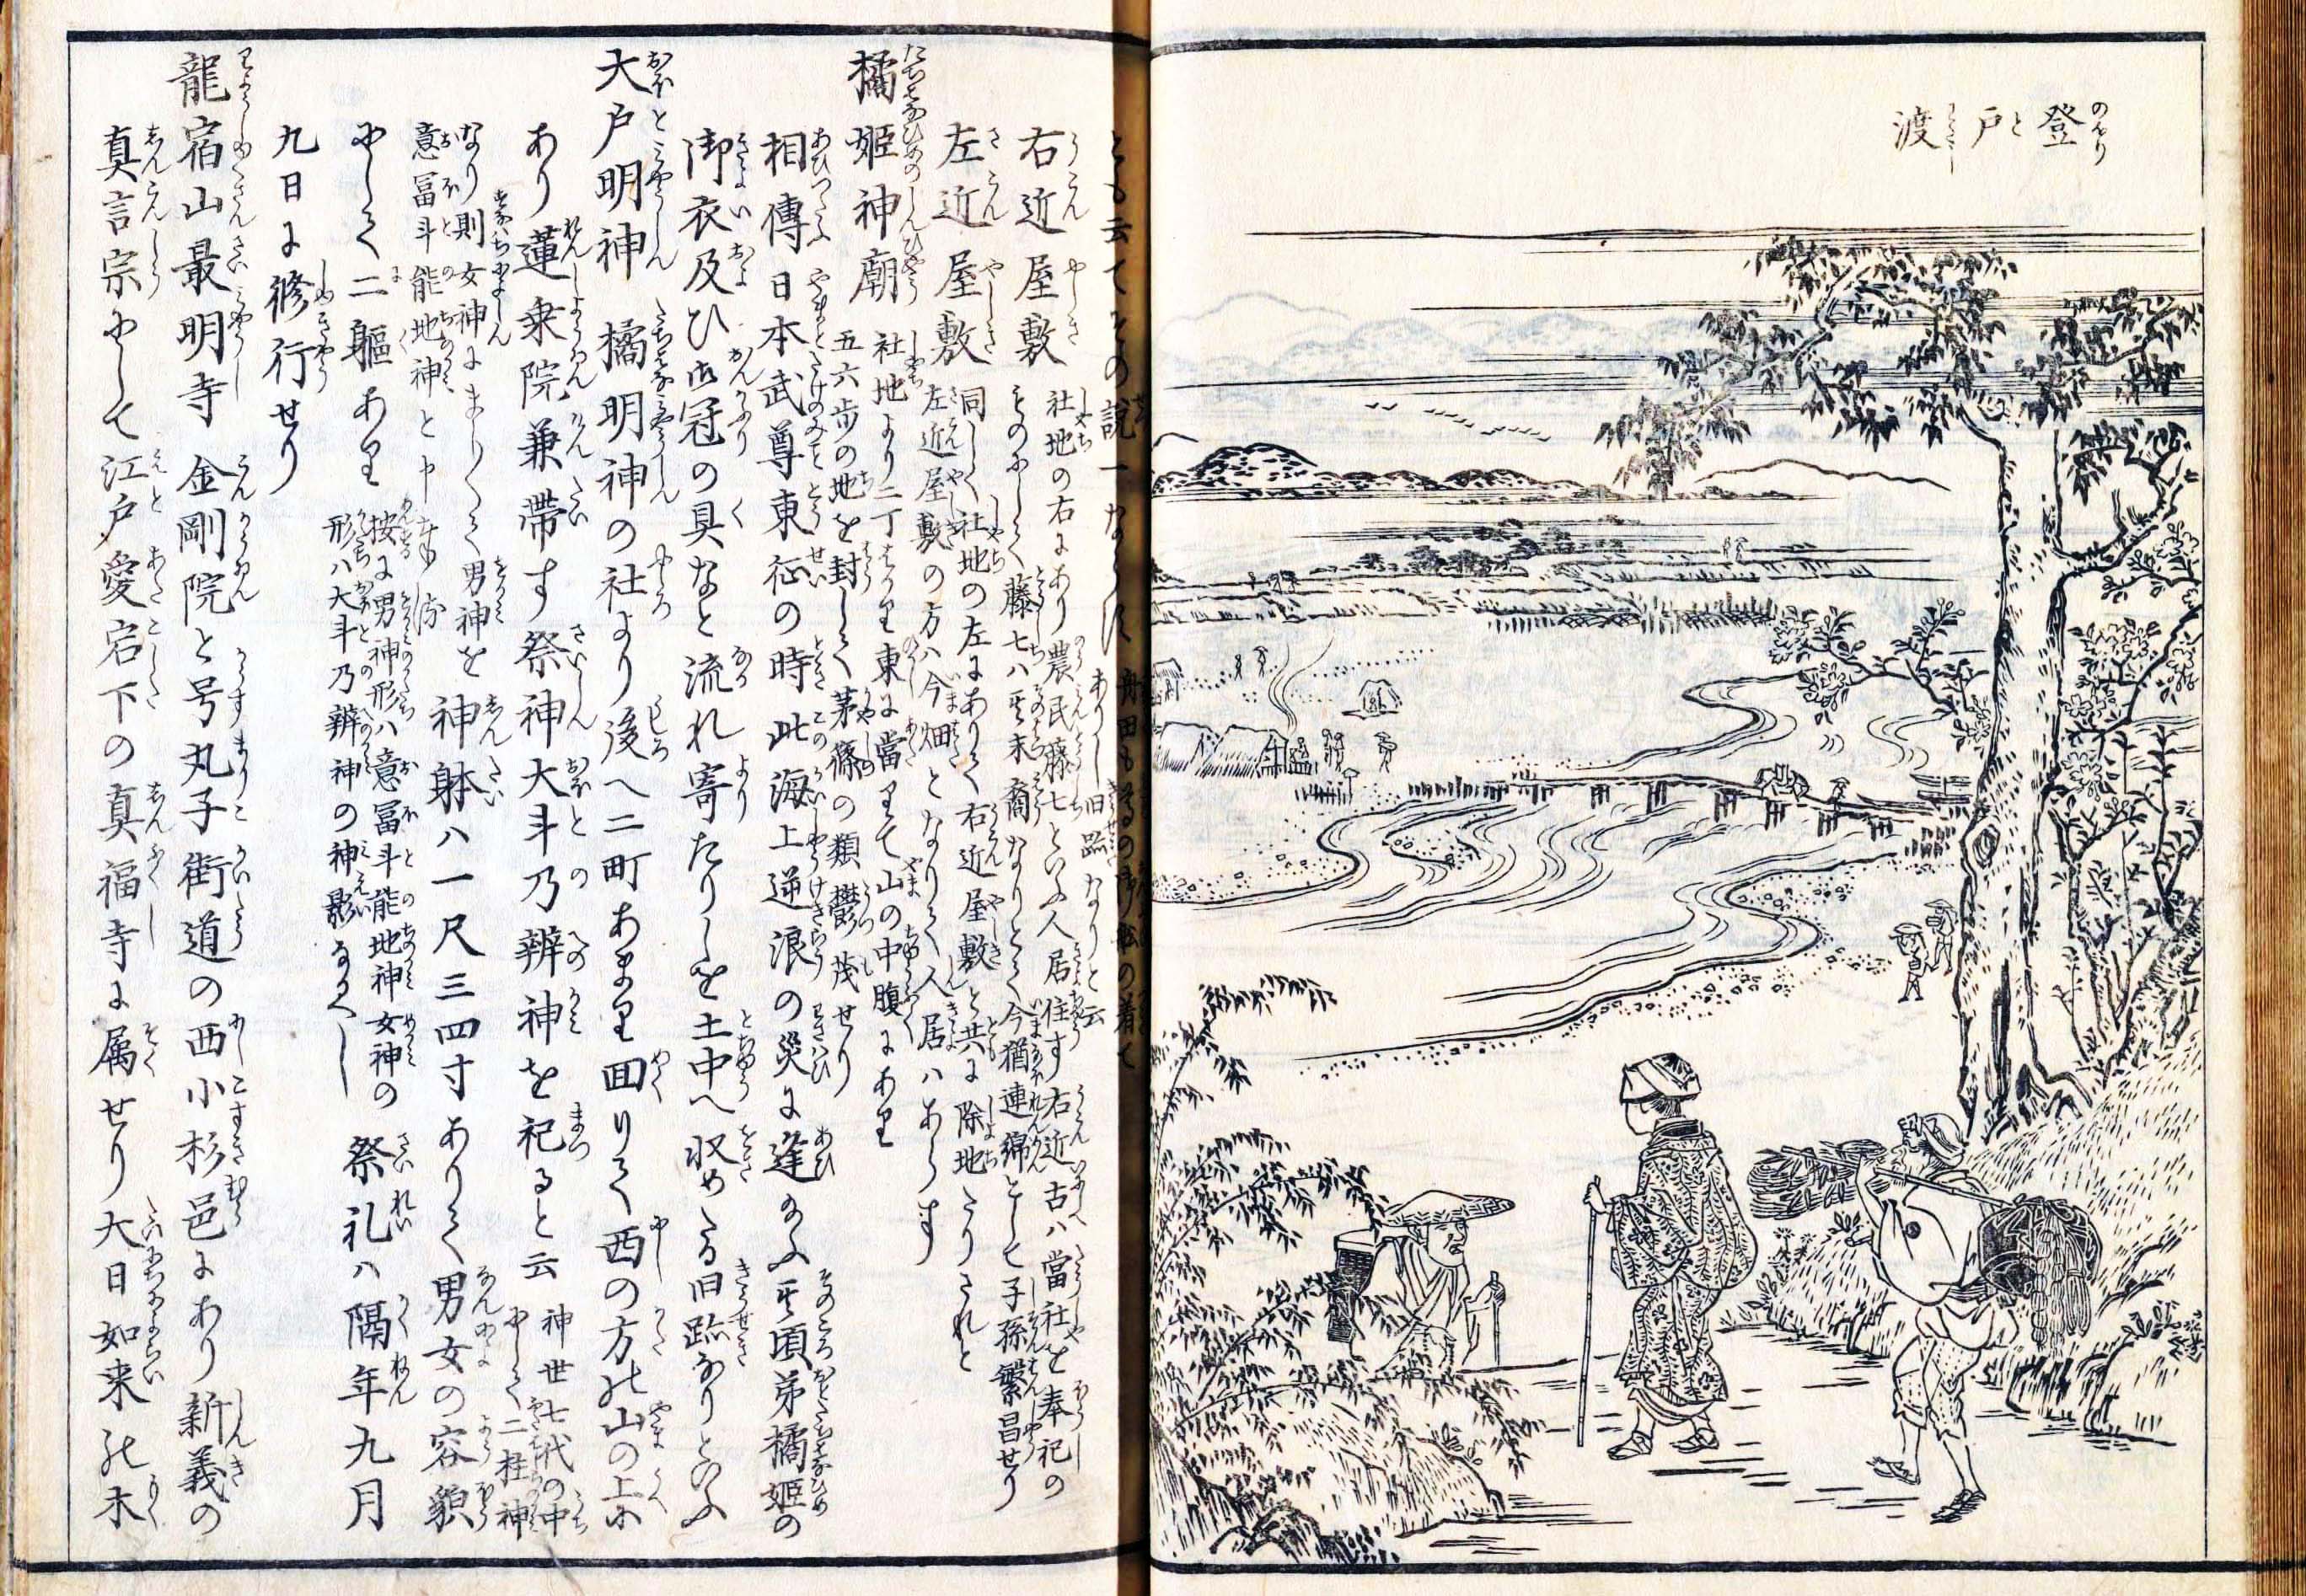 登戸渡
とも云てその説一ならす
右近屋敷 社地の右にあり農民藤七といふ人居住す右近古ハ當社を奉祀の
ものにして藤七ハ其末裔なりとて今猶連綿として子孫繁昌せり
左近屋敷 同しく社地の左にありて右近屋敷と共に除地たりされと
左近屋敷の方ハ今畑となりて人居ハあらす
橘姫神廟 社地より二丁はかり東に當りて山の中腹にあり
五六歩の地を封して茅篠の類鬱茂せり
相傳日本武尊東征の時此海上逆浪の災に逢給ふ其頃弟橘姫の
御衣及ひ御冠の具なと流れ寄たりしを土中へ収めたる旧跡なりといふ
大戸明神 橘明神の社より後へ二町あまり囬りて西の方の山の上に
あり蓮乗院兼帯す祭神大斗乃辨神を祀ると云 神世七代の中
にして二柱神
なり則女神にましまして男神を
意冨斗能地神と申
神躰ハ一尺三四寸ありて男女の容貌
にして二軀あり 按に男神形ハ意冨斗能地神女神の
形ハ大斗乃辨神の神影なるへし
祭礼ハ隔年九月
九日に修行せり
龍宿山最明寺 金剛院と号す丸子街道の西小杉邑にあり新義の
真言宗にして江戸愛宕下の真福寺に属せり大日如来の木